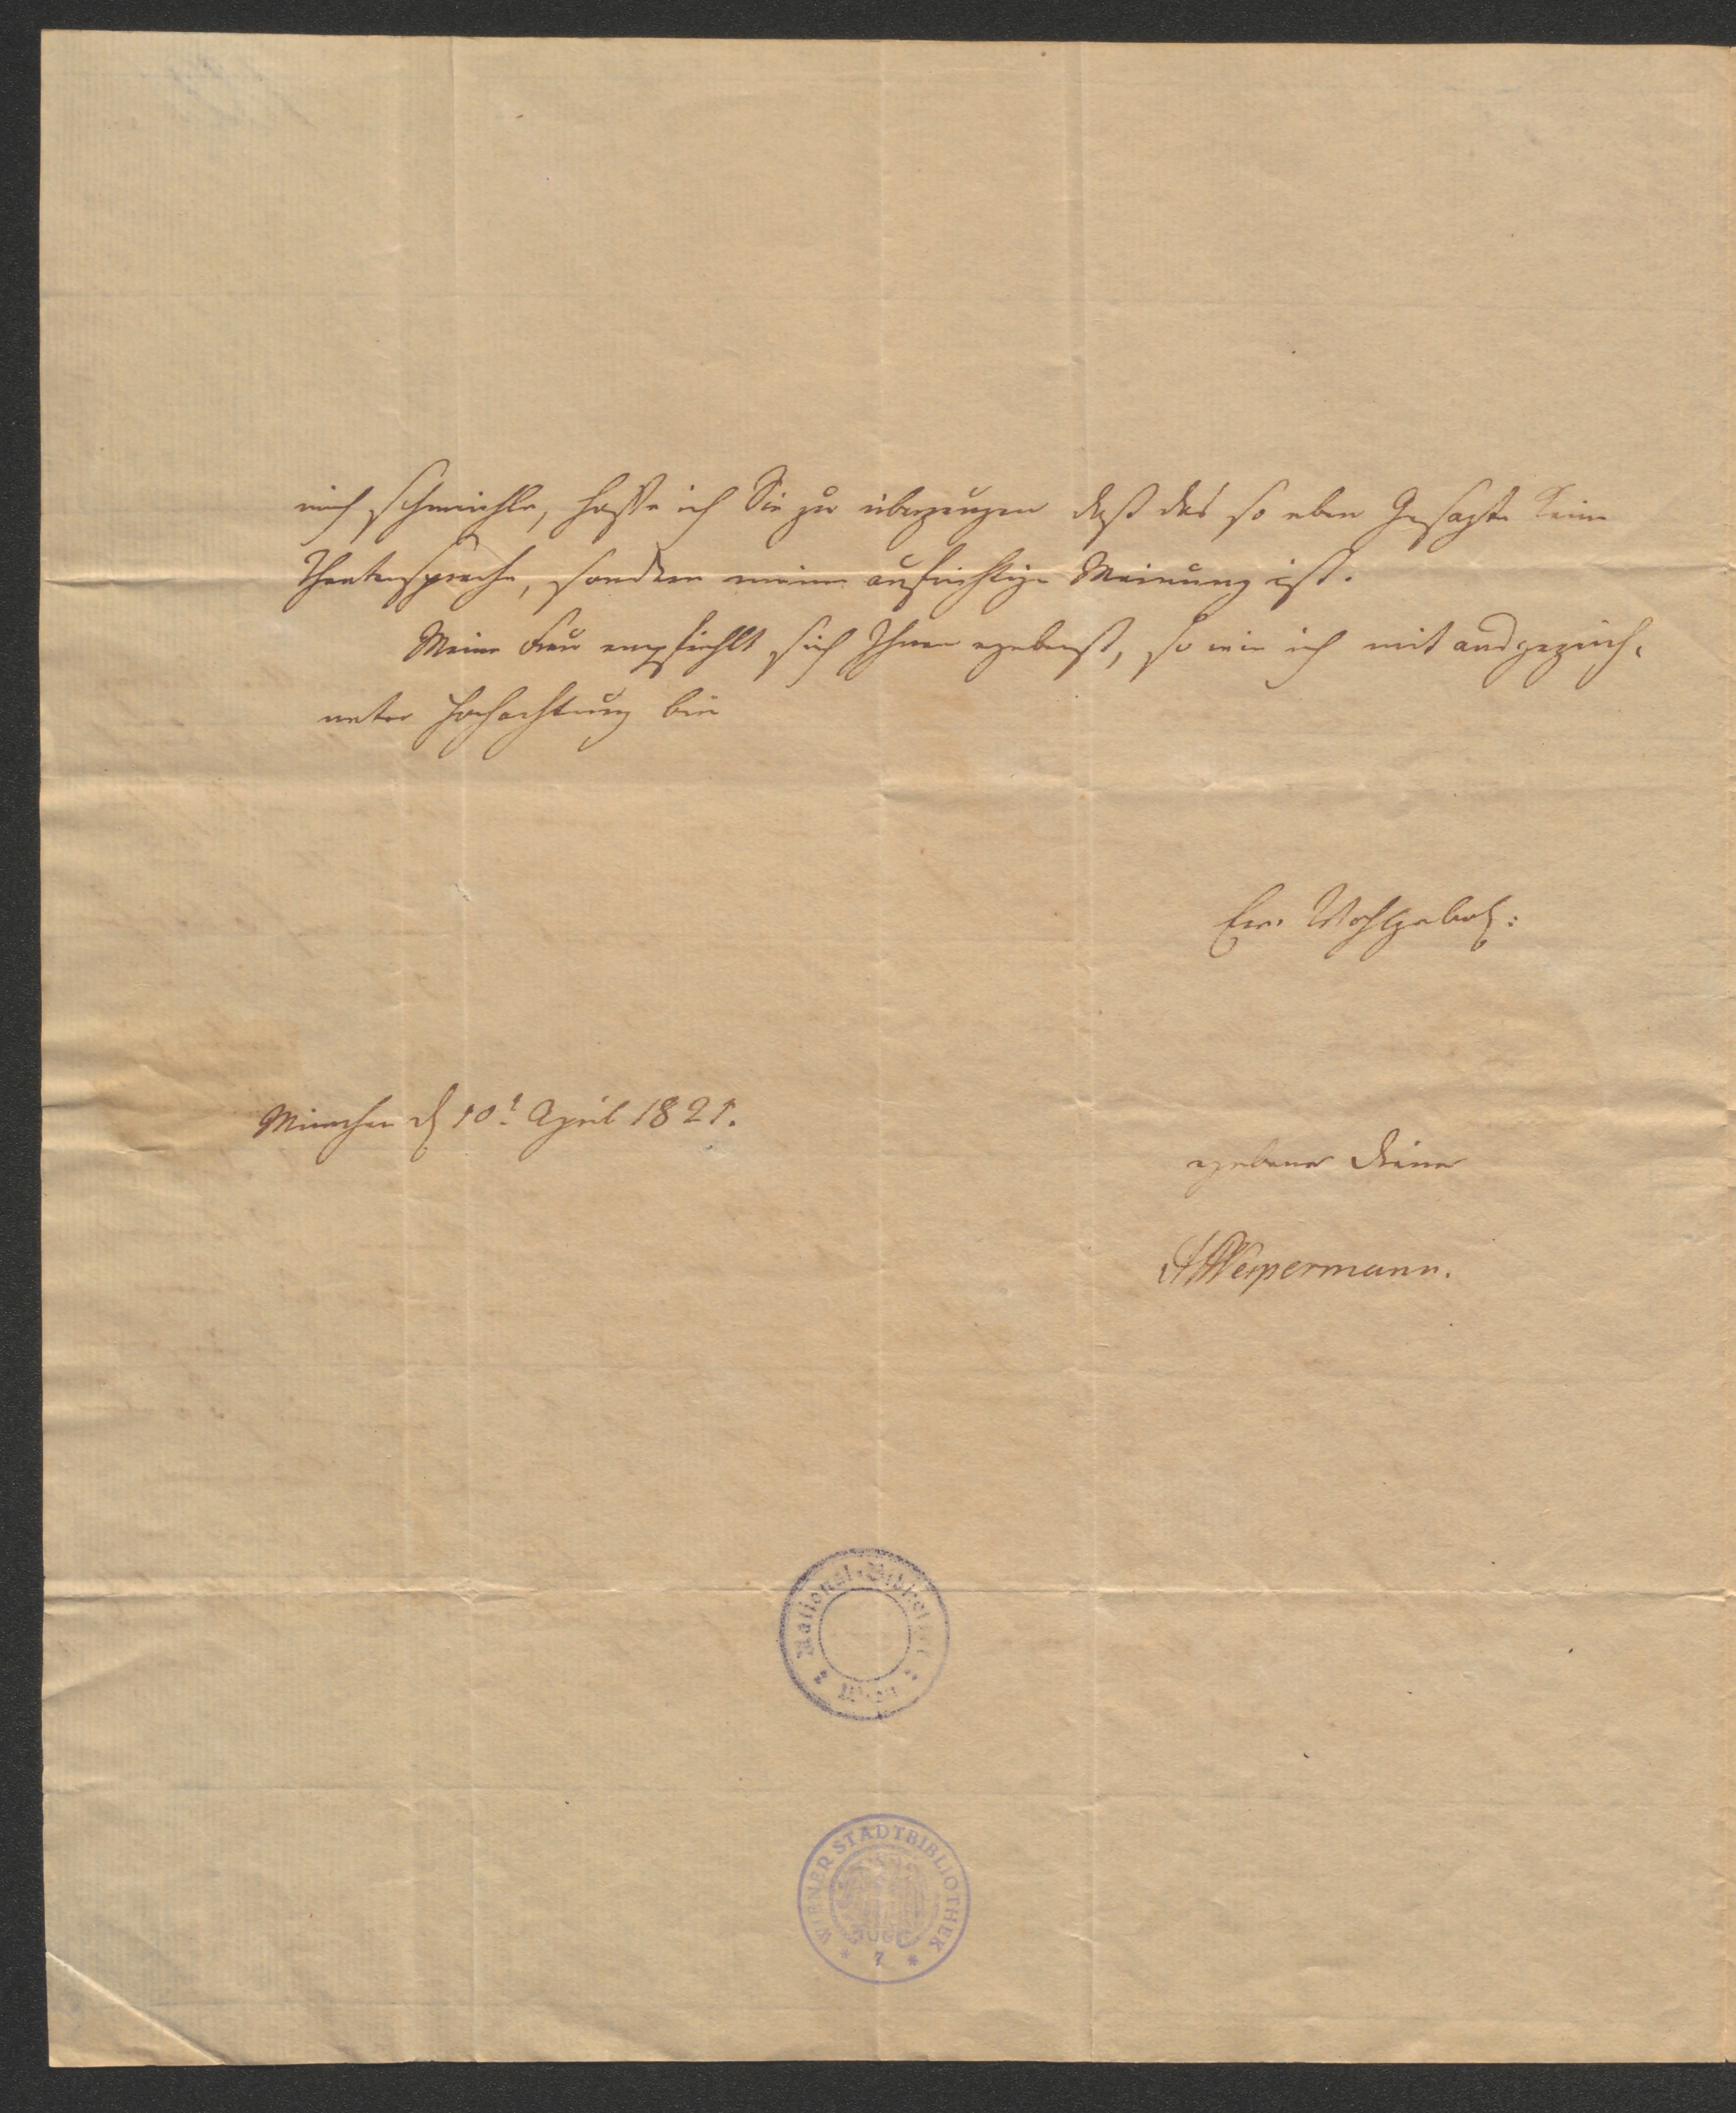 mich schmeichle, hoffe ich Sie zu überzeugen daß das so eben Gesagte keine
Theatersprache, sondern meine aufrichtige Meinung ist.
Meine Frau empfiehlt sich Ihnen ergebenst, so wie ich mit ausgezeich-
neter Hochachtung bin
Eur. Wohlgeb:
München d 10t April 1821.
ergebener Diener
Wespermann.
National-Bibliothek
Wien
WIENER STADTBIBLIOTHEK
* 7 *